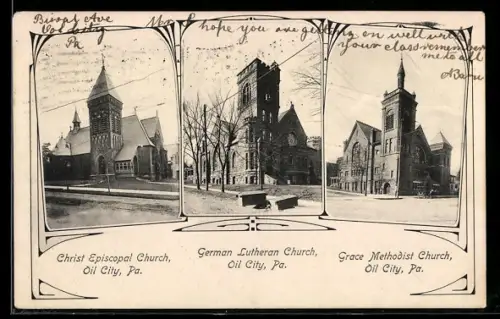 Ave
Oil City
Pa
I hope you are getting on well with
your class remember
me to all
Christ Episcopal Church,
Oil City, Pa.
German Lutheran Church,
Oil City, Pa.
Grace Methodist Church,
Oil City, Pa.